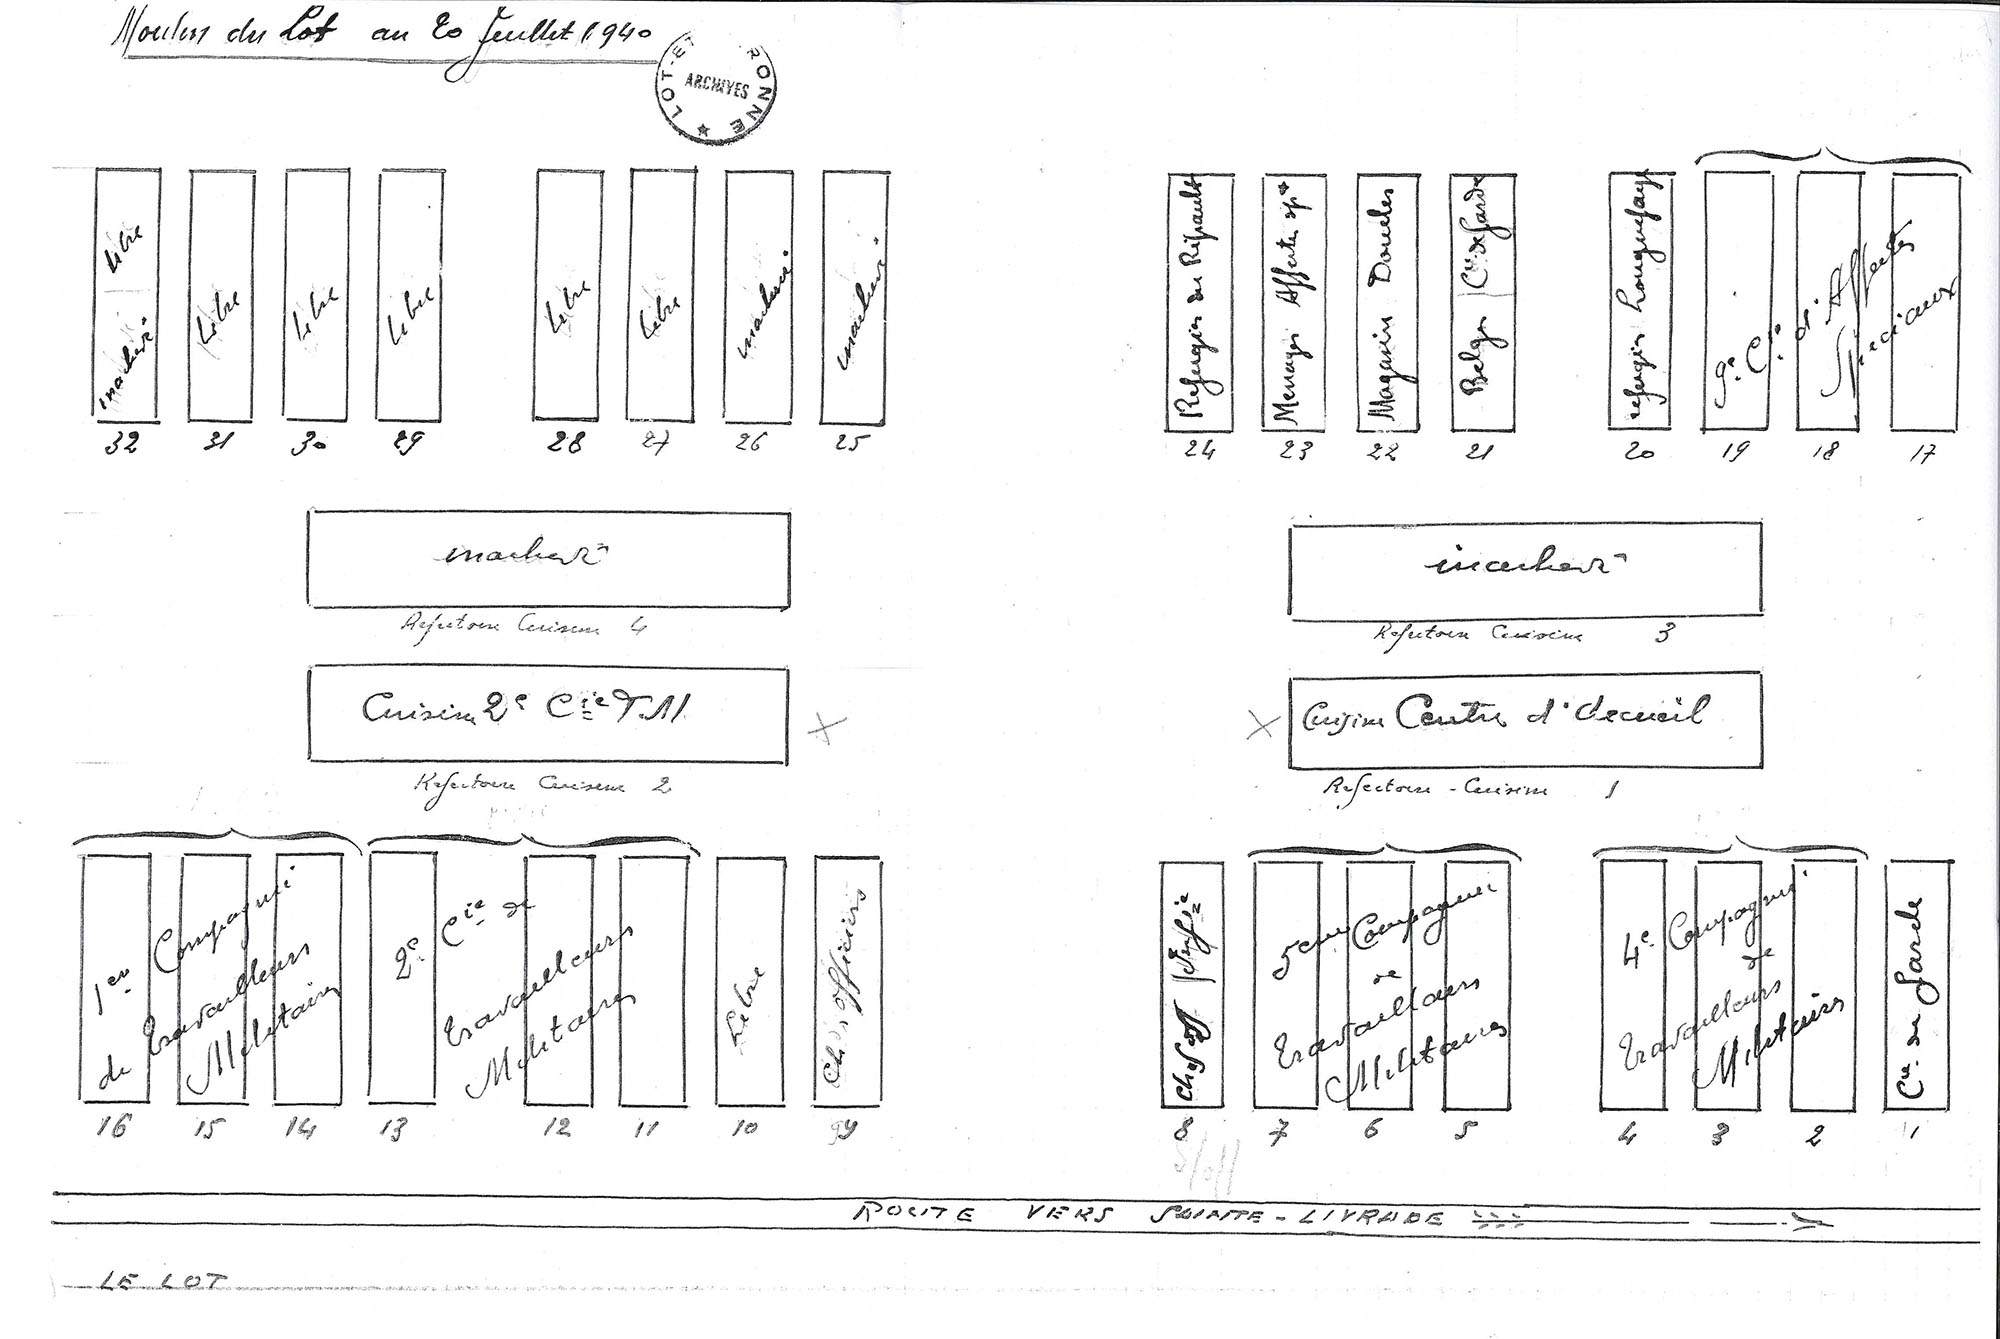 Moulin du Lot au 20 Juillet 1940
LOT-ET RONNE
ARCHIVES
inachevé Libre
Libre
Libre
Libre
Libre
Libre
inachevé
inachevé
32 31 30 29 28 27 26 25
Refugiés du Ripault
Menages Affectés sp
Magasin Douilles
Belges Cie de Garde
refugiés
9e Cie d'Affectés
Speciaux
24 23 22 21 20 19 18 17
inachevé
Refectoire Cuisine 4
inachevé
Refectoire Cuisine 3
Cuisine 2e Cie T.M.
Refectoire Cuisine 2
Cuisine Centre d'accueil
Refectoire - Cuisine 1
1er Compagnie
de Travailleurs
Militaires
2e Cie de
Travailleurs
Militaires
Libre
Ch officiers
16 15 14 13 12 11 10 9
5eme Compagnie
de
Travailleurs
Militaires
4e Compagnie
de
Travailleurs
Militaires
Cie de Garde
8 7 6 5 4 3 2 1
ROUTE VERS SAINTE-LIVRADE
LE LOT